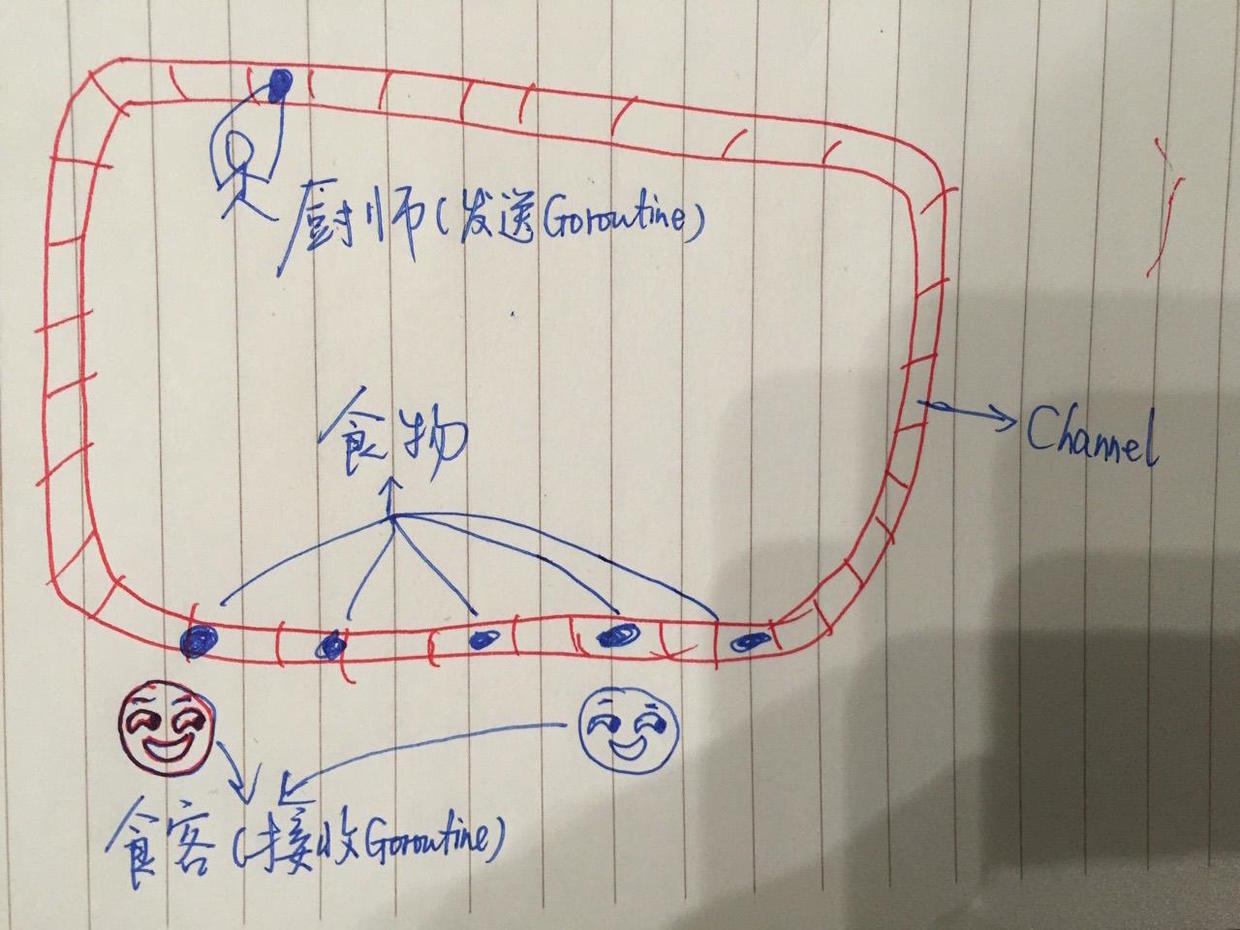 厨师(发送Goroutine)
食物
Channel
食客(接收Goroutine)